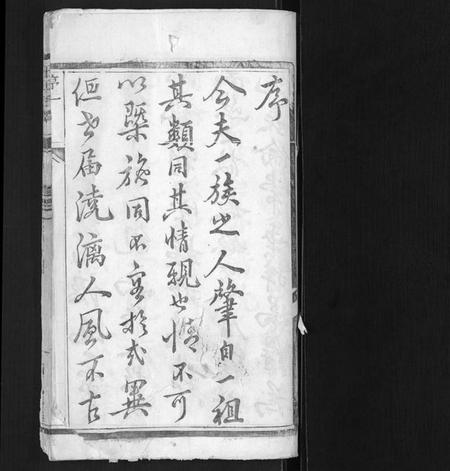 序
今夫一族之人肇自一祖
其類同其情親也情不可
以槩施同不容於或異
但世届澆漓人風不古
序一